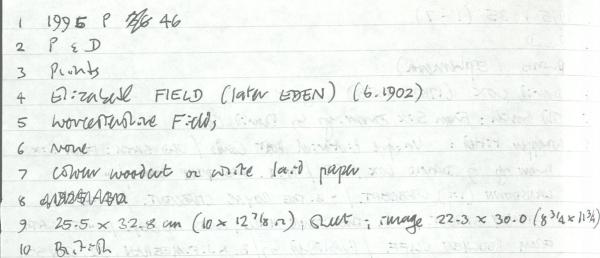 1 1995 P 46
2 P & D
3 Prints
4 Elizabeth FIELD (later EDEN) (b.1902)
5 Worcestershire Fields
6 None
7 Colour woodcut on white laid paper
8
9 25.5 x 32.8 cm (10 x 12 7/8 in), sheet; image 22.3 x 30.0 (8 3/4 x 11 3/4)
10 British